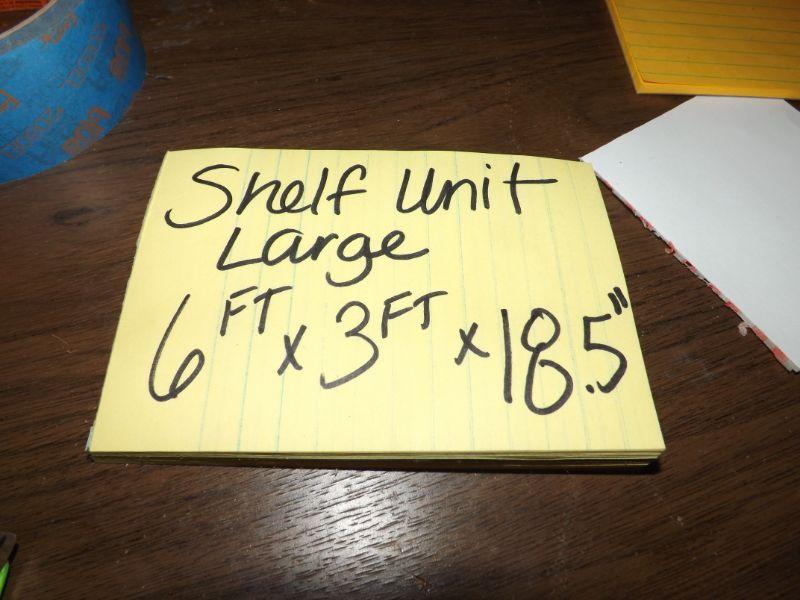 Shelf Unit
Large
6 FT x 3 FT x 18.5"